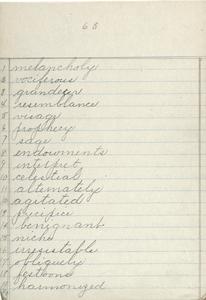 68
1 melancholy
2 vociferous
3 grandeur
4 resemblance
5 visage
6 prophecy
7 sage
8 endowments
9 interpret
10 celestial
11 alternately
12 agitated
13 pacifice
14 benignant
15 niche
16 irresistable
17 obliquely
18 festoons
19 harmonized